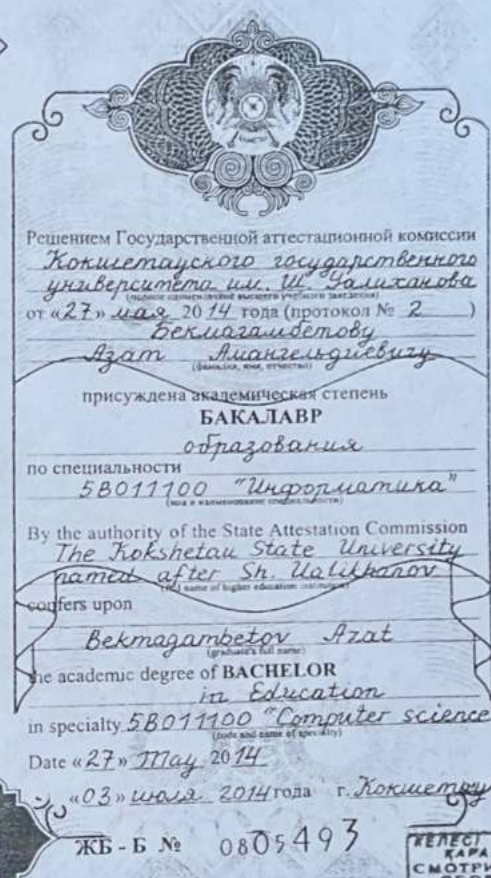 Решением Государственной аттестационной комиссии
Кокшетауского государственного
университета им. Ш. Уалиханова
(полное наименование высшего учебного заведения)
от «27» мая 2014 года (протокол № 2 )
Бекмагамбетову
Азат Амангельдиевичу
(фамилия, имя, отчество)
присуждена академическая степень
БАКАЛАВР
образования
по специальности
5В011100 "Информатика"
(код и наименование специальности)
By the authority of the State Attestation Commission
The Kokshetau State University
named after Sh. Ualikhanov
(full name of higher education institution)
confers upon
Bekmagambetov Azat
(graduate's full name)
the academic degree of BACHELOR
in Education
in specialty 5B011100 "Computer science
(code and name of specialty)
Date «27» May 2014
«03» июля 2014 года г. Кокшетау
ЖБ - Б № 0805493
КЕЛЕСІ
ҚАРА
СМОТРИ